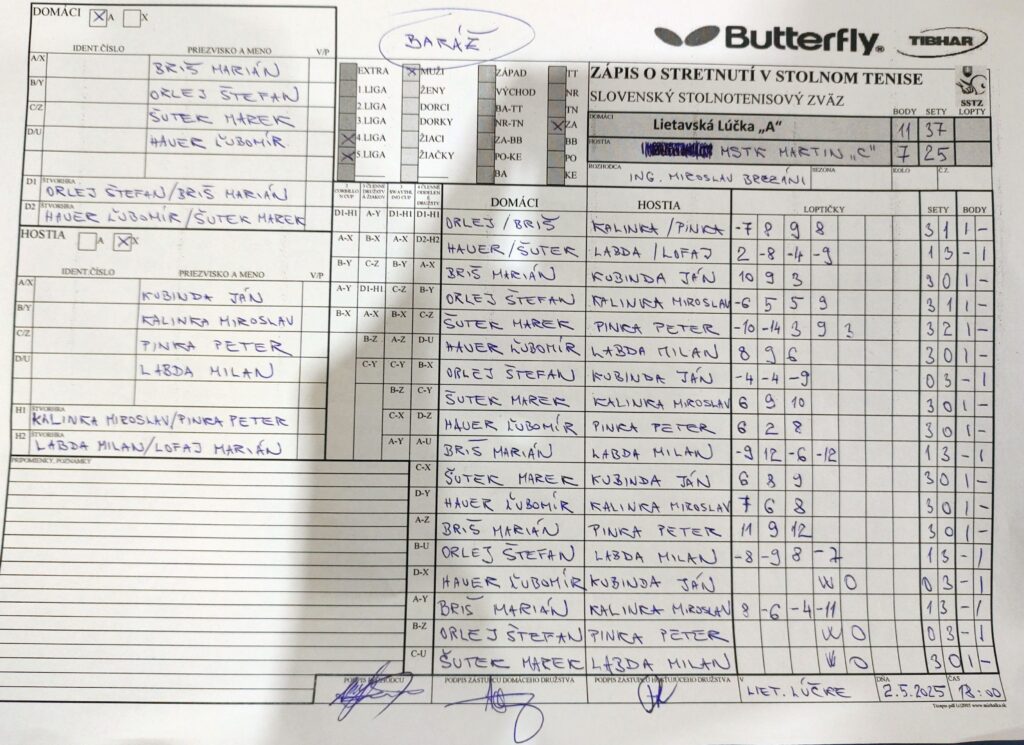 DOMÁCI A X
BARÁŽ
Butterfly® TIBHAR
IDENT.ČÍSLO PRIEZVISKO A MENO V/P
A/X BRIŠ MARIÁN
B/Y ORLEJ ŠTEFAN
C/Z ŠUTEK MAREK
D/U HAUER ĽUBOMÍR
D1 ŠTVORHRA ORLEJ ŠTEFAN/BRIŠ MARIÁN
D2 ŠTVORHRA HAUER ĽUBOMÍR/ŠUTEK MAREK
EXTRA MUŽI ZÁPAD TT
1.LIGA ŽENY VÝCHOD NR
2.LIGA DORCI BA-TT TN
3.LIGA DORKY NR-TN ZA
4.LIGA ŽIACI ZA-BB BB
5.LIGA ŽIAČKY PO-KE PO
BA KE
ZÁPIS O STRETNUTÍ V STOLNOM TENISE
SLOVENSKÝ STOLNOTENISOVÝ ZVÄZ
SSTZ
BODY SETY LOPTY
DOMÁCI Lietavská Lúčka „A" 11 37
HOSTIA MSTK MARTIN „C" 7 25
ROZHODCA ING. MIROSLAV BREZÁNI SEZONA KOLO Č.Z.
HOSTIA A X
IDENT.ČÍSLO PRIEZVISKO A MENO V/P
A/X KUBINDA JÁN
B/Y KALINKA MIROSLAV
C/Z PINKA PETER
D/U LABDA MILAN
H1 ŠTVORHRA KALINKA MIROSLAV/PINKA PETER
H2 ŠTVORHRA LABDA MILAN/LOFAJ MARIÁN
PRIPOMIENKY, POZNÁMKY
DOMÁCI HOSTIA LOPTIČKY SETY BODY
D1-H1 A-Y D1-H1 D1-H1 ORLEJ/BRIŠ KALINKA/PINKA -7 8 9 8 3 1 1 -
A-X B-X A-X D2-H2 HAUER/ŠUTEK LABDA/LOFAJ 2 -8 -4 -9 1 3 - 1
B-Y C-Z B-Y A-X BRIŠ MARIÁN KUBINDA JÁN 10 9 3 3 0 1 -
A-Y D1-H1 C-Z B-Y ORLEJ ŠTEFAN KALINKA MIROSLAV -6 5 5 9 3 1 1 -
B-X A-X B-X C-Z ŠUTEK MAREK PINKA PETER -10 -14 3 9 3 3 2 1 -
B-Z A-Z D-U HAUER ĽUBOMÍR LABDA MILAN 8 9 6 3 0 1 -
C-Y C-Y B-X ORLEJ ŠTEFAN KUBINDA JÁN -4 -4 -9 0 3 - 1
B-Z C-Y ŠUTEK MAREK KALINKA MIROSLAV 6 9 10 3 0 1 -
C-X D-Z HAUER ĽUBOMÍR PINKA PETER 6 2 8 3 0 1 -
A-Y A-U BRIŠ MARIÁN LABDA MILAN -9 12 -6 -12 1 3 - 1
C-X ŠUTEK MAREK KUBINDA JÁN 6 8 9 3 0 1 -
D-Y HAUER ĽUBOMÍR KALINKA MIROSLAV 7 6 8 3 0 1 -
A-Z BRIŠ MARIÁN PINKA PETER 11 9 12 3 0 1 -
B-U ORLEJ ŠTEFAN LABDA MILAN -8 -9 8 -7 1 3 - 1
D-X HAUER ĽUBOMÍR KUBINDA JÁN W O 0 3 - 1
A-Y BRIŠ MARIÁN KALINKA MIROSLAV 8 -6 -4 -11 1 3 - 1
B-Z ORLEJ ŠTEFAN PINKA PETER W O 0 3 - 1
C-U ŠUTEK MAREK LABDA MILAN W O 3 0 1 -
PODPIS ROZHODCU PODPIS ZÁSTUPCU DOMÁCEHO DRUŽSTVA PODPIS ZÁSTUPCU HOSŤUJÚCEHO DRUŽSTVA V LIET. LÚČKE DŇA 2.5.2025 ČAS 18:00